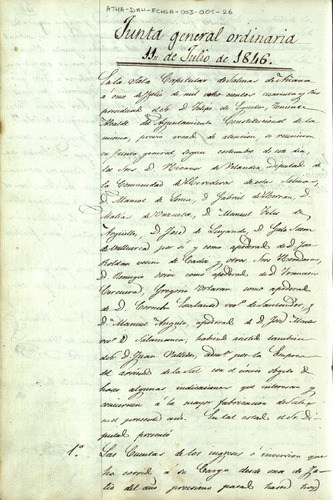 ATHA-DAH-FCHSA-003-005-26
Junta general ordinaria
11 de Julio de 1846.
En la Sala Capitular de Salinas de Añana
á once de Julio de mil ocho cientos cuarenta y seis
presididos del S. D. Felipe de Teniente
Alcalde del Ayuntamiento Constitucional de la
misma, previo recado de atencion, se reunieron
en Junta general segun costumbre de ese dia,
los Sres. D. Nicanor de Velandia, Diputado de
la Comunidad de Herederos de estas Salinas,
D. Manuel de D. Gabriel de Herran, D.
Matias de D. Manuel Velez de
D. José de Luyando, D.
de Vallluerca por sí y como apoderado de D. José
Roldan vecino de Cadiz y otros Sres Herederos,
D. Remigio como apoderado de D. Francisco
Carcuera, Gregorio como apoderado
de D. Cornelio Escalante vecº de Santander, y
D. Manuel Angulo, apoderado de D. José
vecº de Salamanca, habiendo asistido tambien
el S. D. Juan Administrador por la Empresa
del arriendo de la Sal con el unico objeto de
hacer algunas indicaciones que interesan y
convienen á la mayor fabricacion de Sal
en el presente año. En tal estado el Sr. Di-
putado presentó
1º. Las Cuentas de los ingresos é inversion que
ha corrido á su Cargo desde once de Ju-
lio del año procsimo pasado hasta hoy